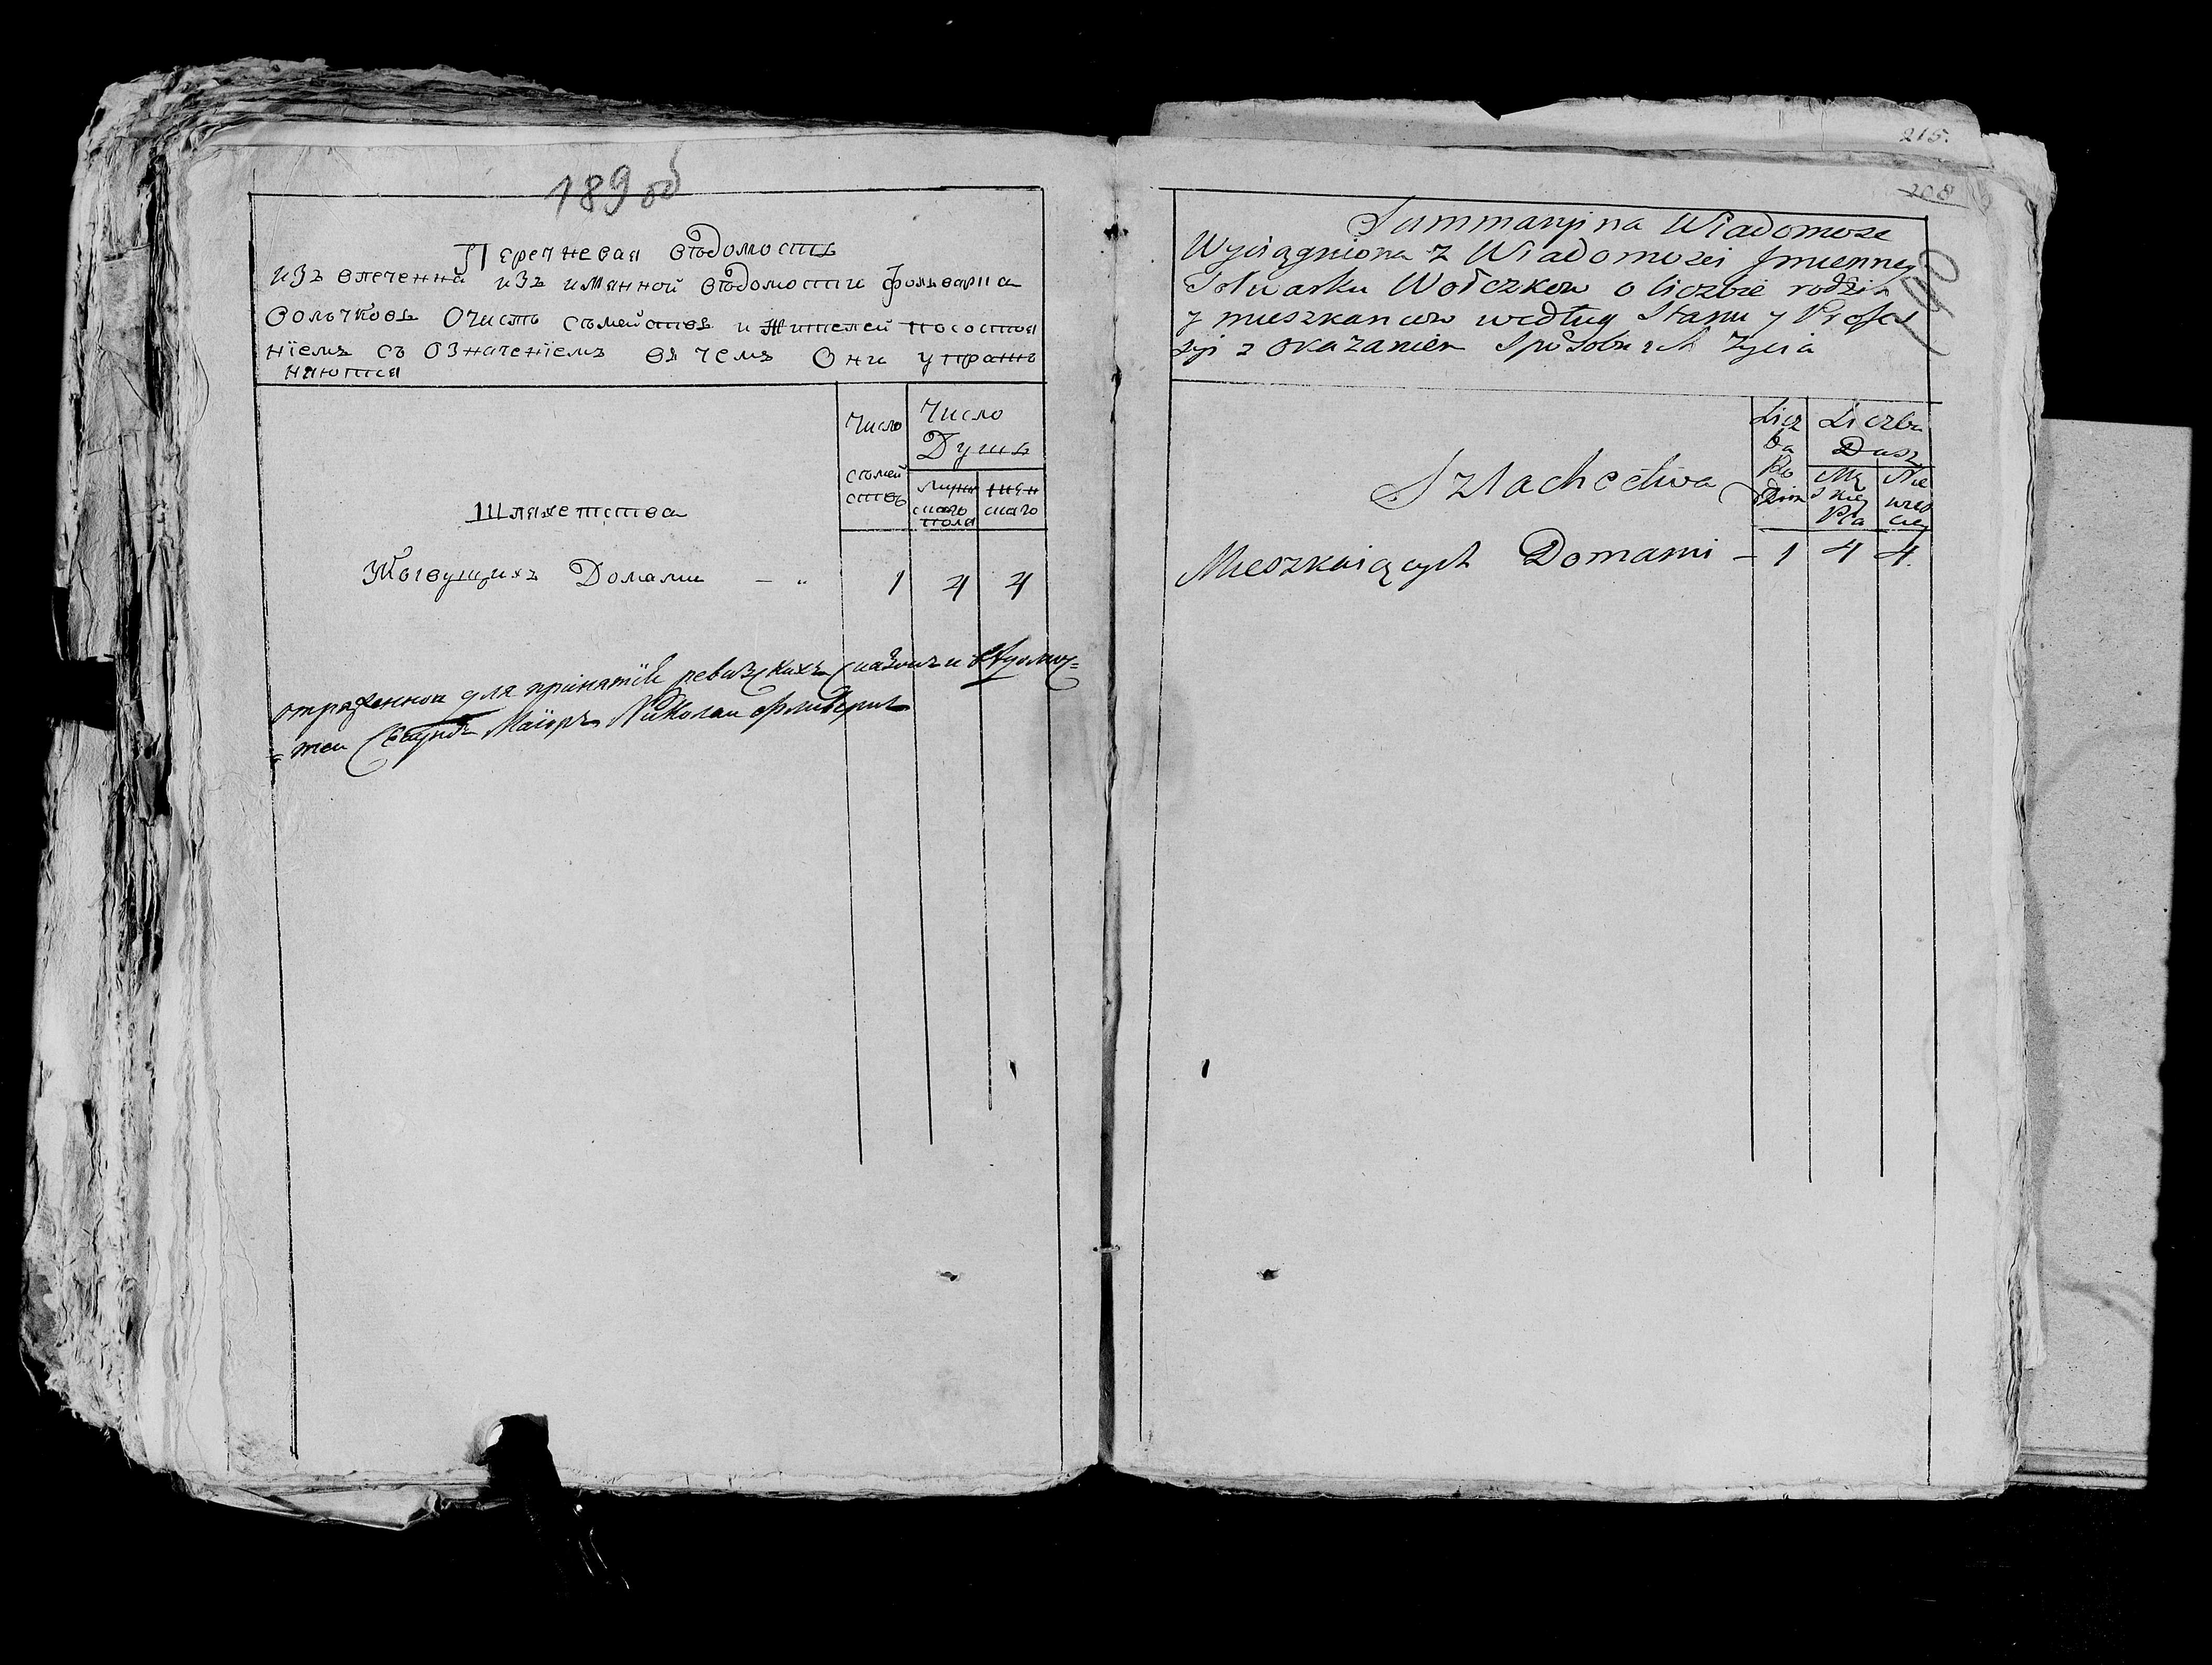 189 об
Перечневая вѣдомость
изъ влеченна изъ имянной вѣдомости фольварка
Волочковъ Очислѣ сѣмействъ и жителей посостоя
нїемъ съ Означенїемъ въ чемъ Они упраж
няются
Число
сѣмей
ствъ
Число
Душъ
мужс
скаго
пола
жен
скаго
Шляхетства
Живущихъ Домами - „ 1 4 4
отряженнои для принятïе ревизскихъ сказокъ и вѣдомос=
=теи Секундъ Маïоръ Николаи
215.
208
Summaryina Wiadomosc
Wyciągniona z Wiadomosci Jmienney
Folwarku Wołczkow o liczbie rodzin
y mieszkancow według Stanu y Profes
syi z okazaniem Sposobu ich Zycia
Licz
ba
Ro
dzin
Liczba
Dusz
Mę
skiey
Płci
Nie
wieś
ciey
Szlachectwa
Mieszkaiących Domami - 1 4 4.